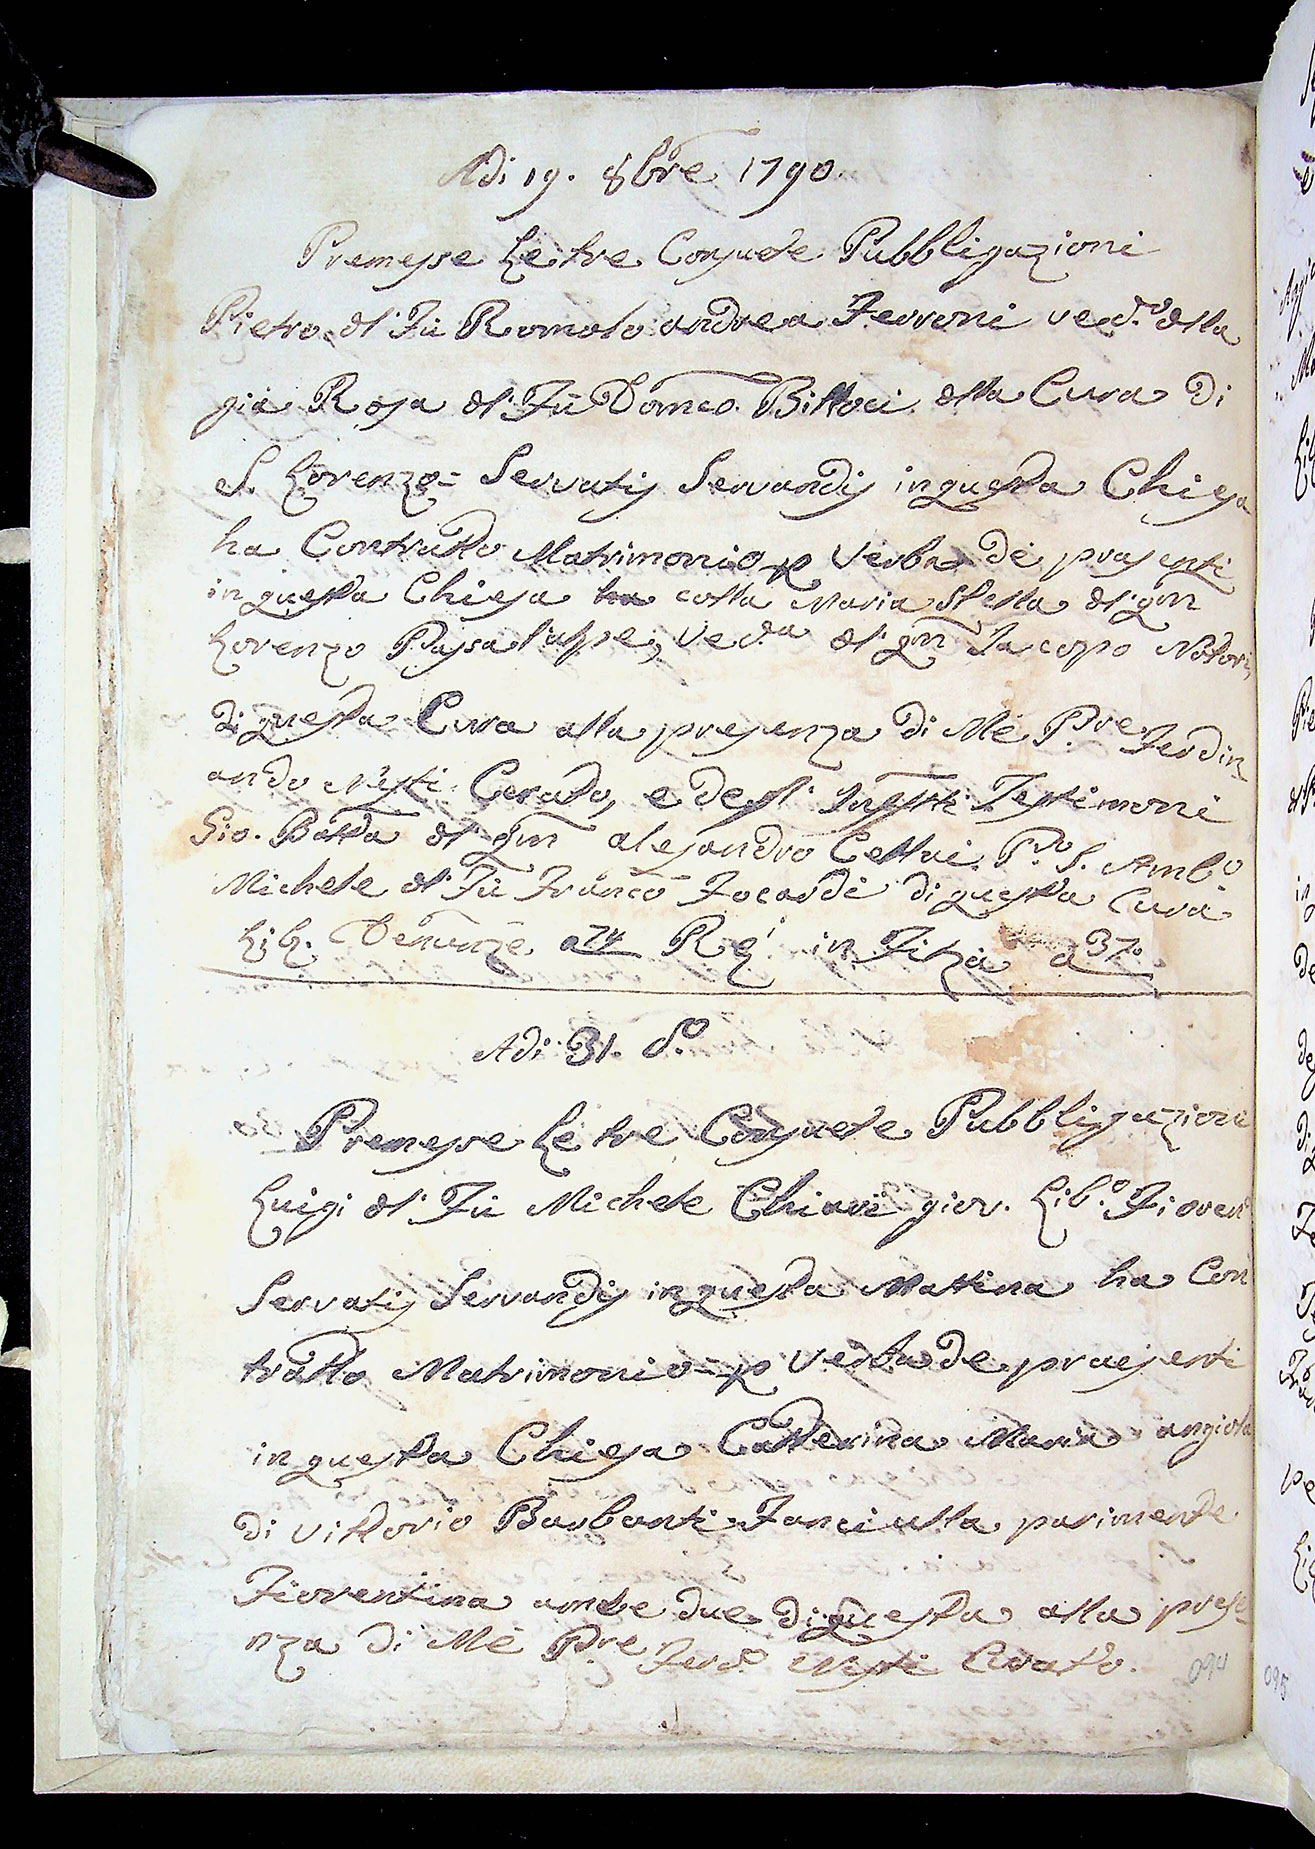 Adi 19. 8bre 1790
Premesse Le tre Consuete Pubbligazioni
Pietro dl' Fù Romolo andrea Ferroni ved.vo dlla
già Rosa dl' Fù Domco. Bittoci dlla Cura Di
S. Lorenzo = Servatis Servandis in questa Chiesa
ha Contratto Matrimonio p Verba De presenti
in questa Chiesa ha colla Maria Stella dl' qm
Lorenzo Passalalpe, Ved.a dl' qm Jacopo
Di questa Cura alla presenza di Me P.re Ferdin
ando Nesti Curato, e degl' Testimoni
Gio. Batta dl' qm alesandro Cellai P.o S. Amb.o
Michele dl' Fù Franco Focardi di questa Cura
Lib. Denunzie a 74 in Filza a 37.
Adi 31. d.o
Premesse Le tre Consuete Pubbligazione
Luigi dl' Fù Michele Chiari giov. Lib.o Fiorent
Servatis Servandis in questa Mattina ha Con
tratto Matrimonio p Verba de praesenti
in questa Chiesa Catterina Maria angiola
Di Vittorio Barbanti Fanciulla parimente
Fiorentina ambe due Di questa alla prese
nza Di Me P.re Ferd.o Nesti Curato.
094
095